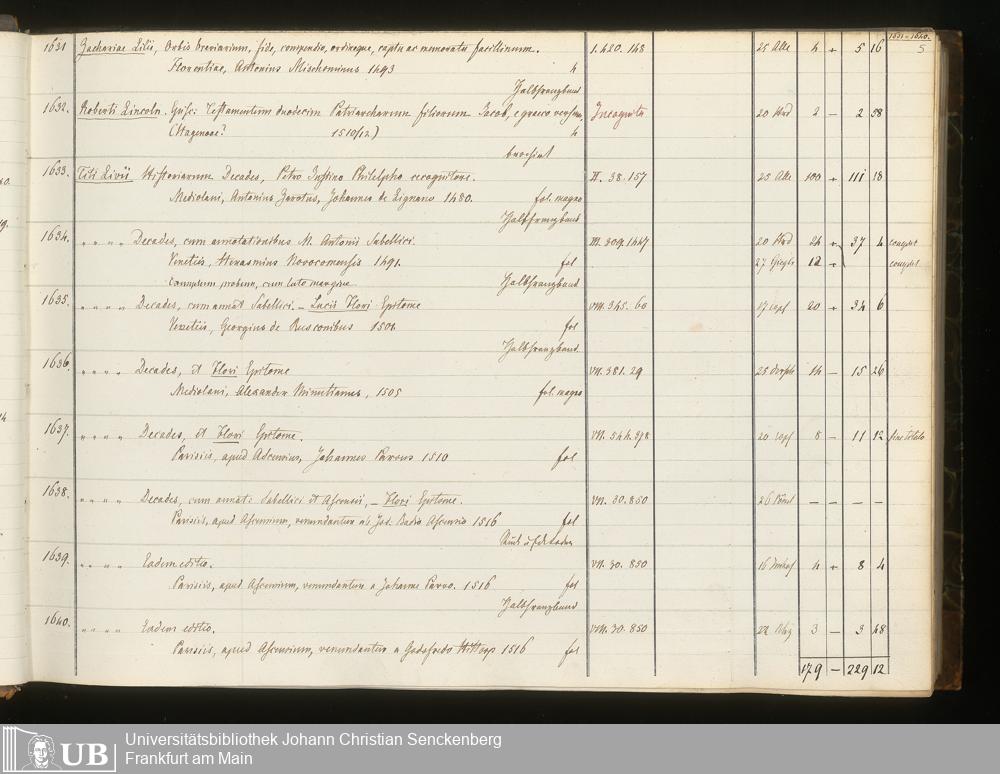 1631-1640.
5
1631 Zachariae Lilii, Orbis breviarium, fide, compendio, ordineque, captu ac memoratu facillimum. I. 420. 148 25 4 + 5 16
Florentiae, Antonius Mischominus 1493 4
Halbfranzband
1632. Roberti Lincoln. Testamentum duodecim Patriarcharum filiorum Jacob, e graeco Incognita 20 2 – 2 58
Hagenoae? 1510(12) 4
brochirt
1633. Titi Livii Historiarum Decades, Petro Justino Philelpho recognitore. II. 38. 157 25 100 + 111 18
Mediolani, Antonius Zarotus, Johannes de Lignano 1480. fol. magno
Halbfranzband
1634. " " " " Decades, cum annotationibus M. Antonii Sabellici. III. 309. 1447 20 24 + 37 4 complet
Venetiis, Novocomensis 1491. fol 27 12 + complet
cum lato margine Halbfranzband
1635. " " " " Decades, cum annot Sabellici. – Lucii Flori Epitome VIII. 345. 60 17 20 + 34 6
Venetiis, Georgius de Rusconibus fol
Halbfranzband
1636. " " " " Decades, et Flori Epitome VII. 381. 29 25 14 – 15 26
Mediolani, Alexander Minutianus, 1505 fol. magno
1637. " " " " Decades, et Flori Epitome. VII. 544. 378 20 8 – 11 12 sine titulo
Parisiis, apud Ascensium, Johannes Parvus 1510 fol
1638. " " " " Decades, cum annot: Sabellici et Ascensii, – Flori Epitome. VII. 30. 850 26 – – – –
Parisiis, apud Ascensium, venundantur ab Jod. Badio Ascensio 1516 fol
1639. " " " " Eadem editio. VII. 30. 850 16 4 + 8 4
Parisiis, apud Ascensium, venundantur a Johanne Parvo. 1516 fol
Halbfranzband
1640. " " " " Eadem editio. VIII. 30. 850 22 3 – 3 48
Parisiis, apud Ascensium, venundantur a Godofredo Hittorp 1516 fol
179 – 229 12
UB
Universitätsbibliothek Johann Christian Senckenberg
Frankfurt am Main